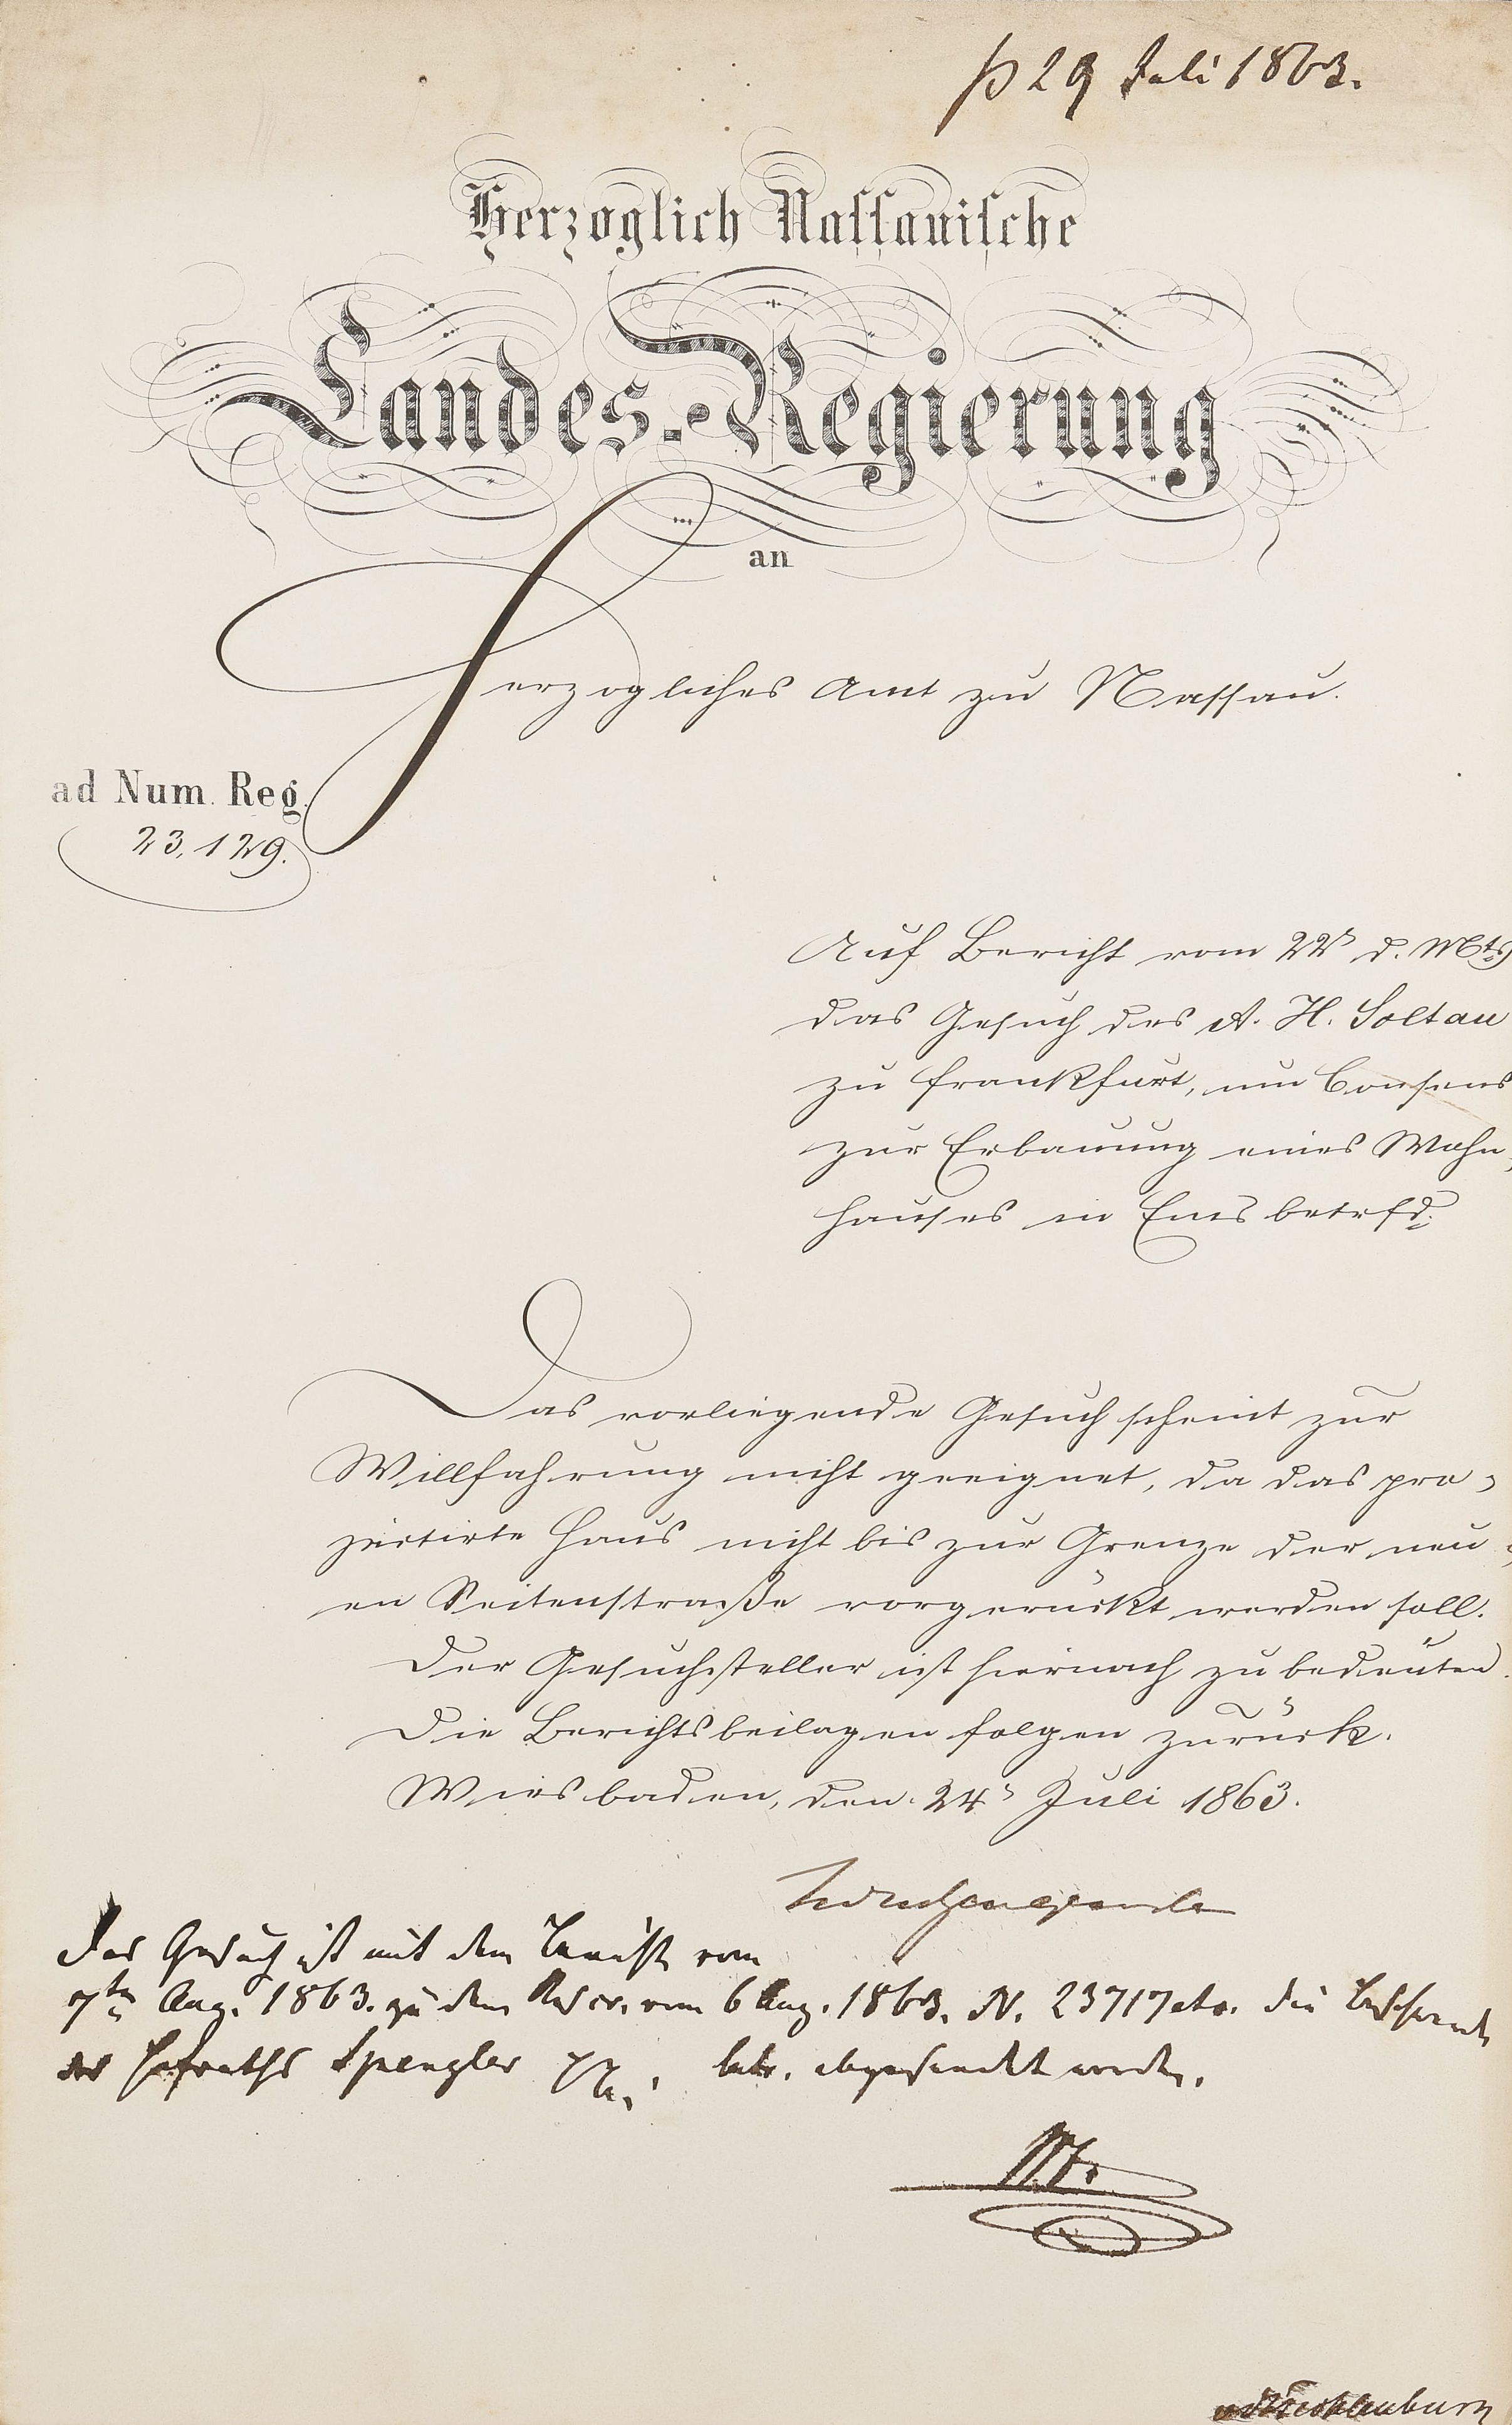 29 Juli 1863.
Herzoglich Nassauische
Landes-Regierung
an
Herzogliches Amt zu Nassau.
ad Num. Reg.
23,129.
Auf Bericht vom 22ⁿ d. Mts
das Gesuch des A. H. Soltau
zu Frankfurt, um Consens
zur Erbauung eines Wohn-
hauses in Ems betrfd.
Das vorliegende Gesuch scheint zur
Willfahrung nicht geeignet, da das pro-
jectirte Haus nicht bis zur Grenze der neu-
en Seitenstraße vorgerückt werden soll.
Der Gesuchsteller ist hiernach zu bedeuten.
Die Berichtsbeilagen folgen zurück.
Wiesbaden, den 24ⁿ Juli 1863.
Das Gesuch ist mit dem Bericht vom
7ten Aug. 1863. zu dem Rescr. vom 6 Aug. 1863. N. 23717 die Beschwerde
des Hofraths Spengler betr. abgesandt worden.